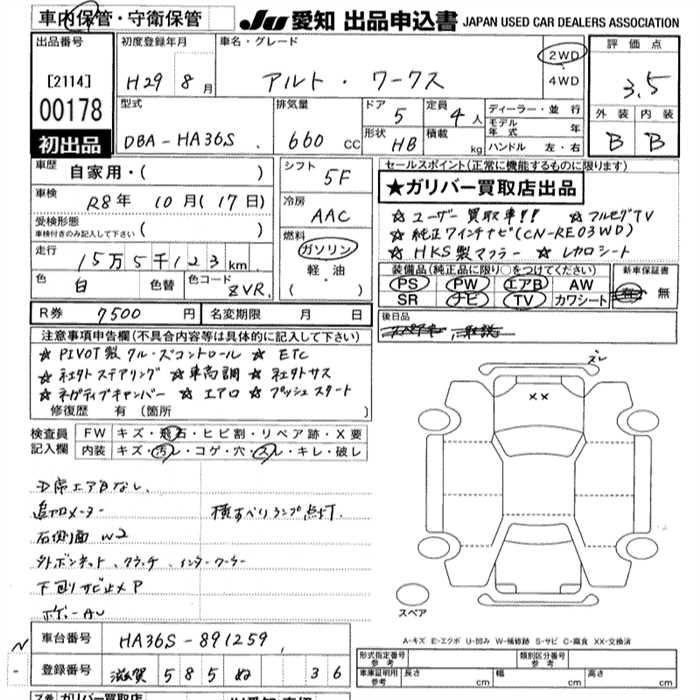 車内保管・守衛保管 JU 愛知 出品申込書 JAPAN USED CAR DEALERS ASSOCIATION
出品番号 初度登録年月 車名・グレード 評価点
[2114] H29年8月 アルト・ワークス 2WD・4WD 3.5
00178 型式 排気量 ドア 5 定員 4人 ディーラー・並行 外装 内装
初出品 DBA-HA36S. 660cc 形状 HB 積載 kg モデル年式 年 ハンドル 左・右 B B
車歴 自家用・( ) シフト 5F セールスポイント(正常に機能するものに限ります)
車検 R8年 10月(17日) 冷房 AAC ★ガリバー買取店出品
受検形態 車検付きのみ記入して下さい ( ) ☆ ユーザー買取車!! ☆ フルセグTV
走行 15万5千123km 燃料 ガソリン・軽油・( ) ☆ 純正7インチナビ(CN-RE03WD)
☆ HKS製マフラー ☆ レカロシート
色 白 色替 色コード ZVR. 装備品(純正品に限り○をつけてください) 新車保証書
PS PW エアB AW 有・無
SR ナビ TV カワシート
R券 7500円 名変期限 月 日 後日品
注意事項申告欄(不具合内容等は具体的に記入して下さい)
☆ PIVOT製クルーズコントロール ☆ ETC ズレ
☆ 社外ステアリング ☆ 車高調 ☆ 社外サス XX
☆ ネガティブキャンバー ☆ エアロ ☆ プッシュスタート
修復歴 有 (箇所 )
検査員記入欄 FW キズ・飛石・ヒビ割・リペア跡・X要
内装 キズ・汚レ・コゲ・穴・スレ・キレ・破レ
D席エアBなし、
追加メーター 横すべりランプ点灯.
右側面 W2
外ボンネット、クラッチ、インタークーラー
下回りサビ止メP
ボデーAU
スペア
A-キズ E-エクボ U-凹み W-補修跡 S-サビ C-腐食 XX-交換済
車台番号 HA36S-891259, 形式指定番号 参考 類別区分番号 参考
登録番号 滋賀 585 ぬ 36 車庫証明用 参考 長さ cm 幅 cm 高さ cm
ガリバー買取店